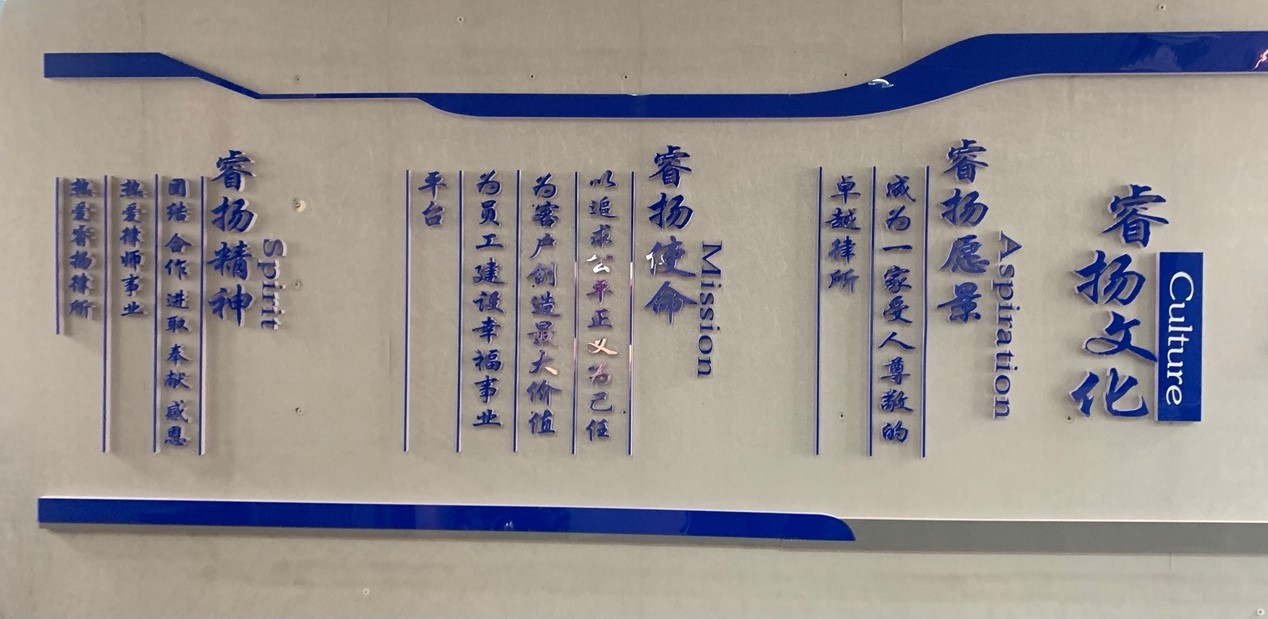 睿扬文化
Culture
睿扬愿景
Aspiration
成为一家受人尊敬的
卓越律所
睿扬使命
Mission
以追求公平正义为己任
为客户创造最大价值
为员工建设幸福事业
平台
睿扬精神
Spirit
团结合作进取奉献感恩
热爱律师事业
热爱睿扬律所